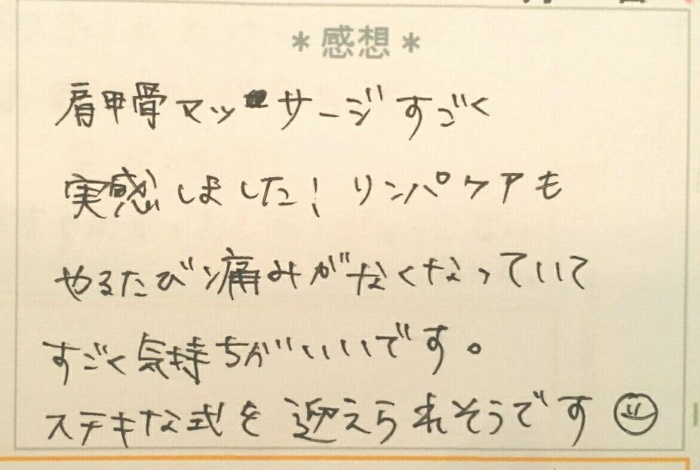 *感想*
肩甲骨マッサージすごく
実感しました! リンパケアも
やるたび痛みがなくなっていて
すごく気持ちがいいです。
ステキな式を迎えられそうです